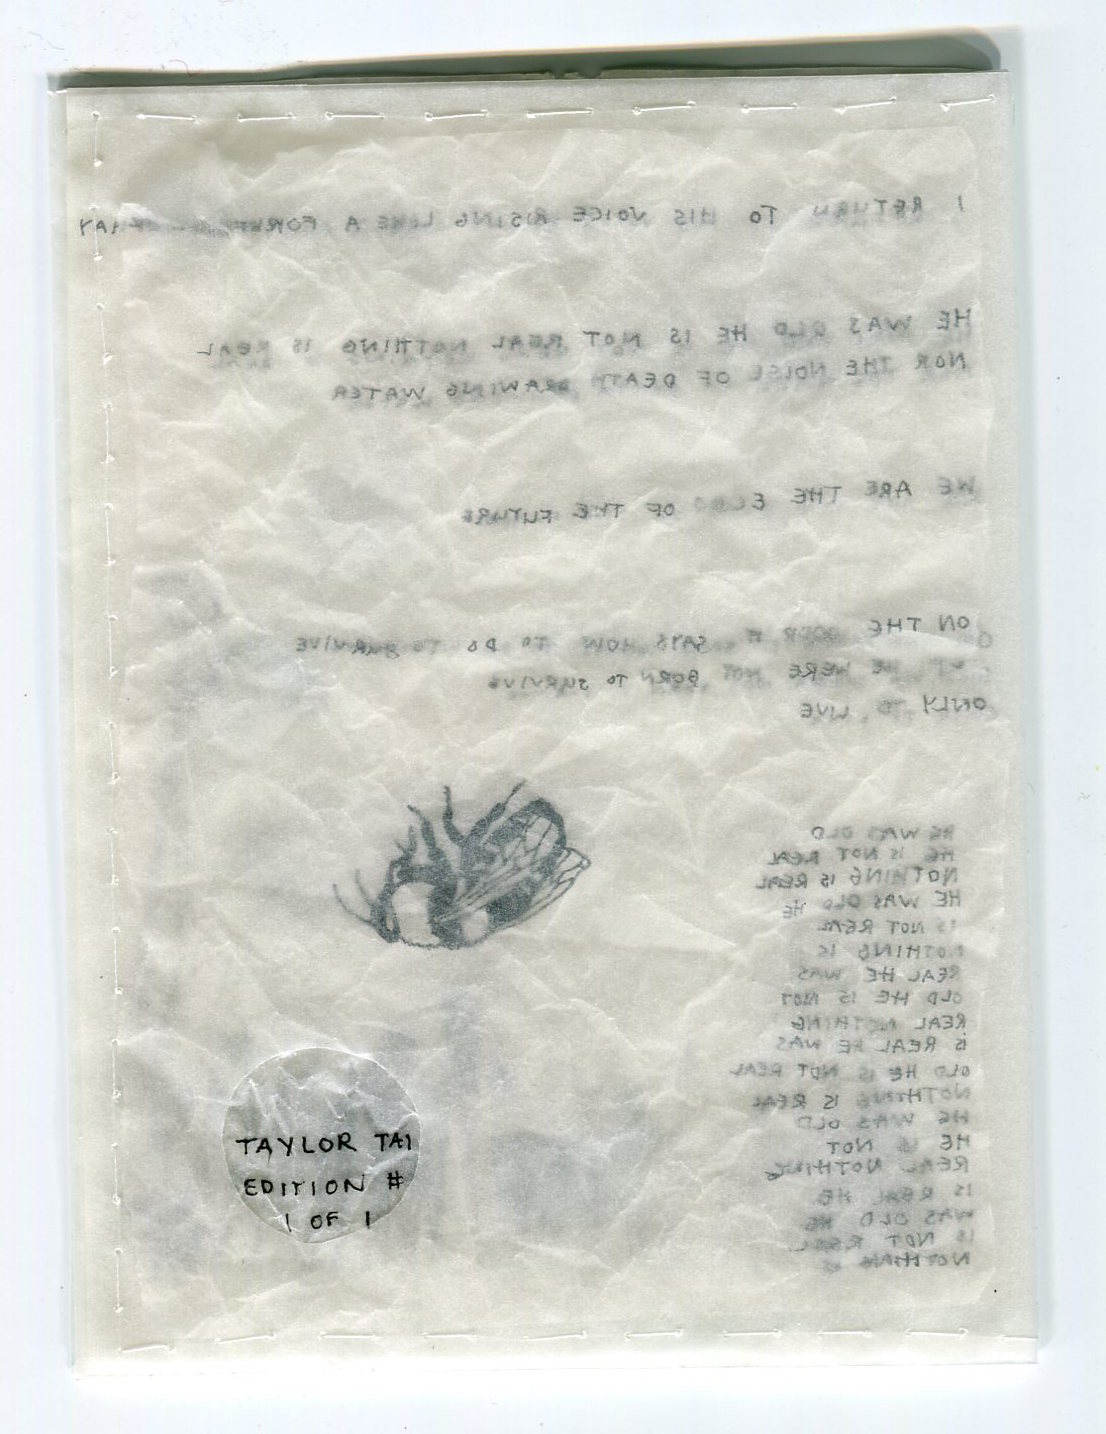 I RETURN TO HIS VOICE RISING LIKE A
HE WAS OLD HE IS NOT REAL NOTHING IS REAL
NOR THE NOISE OF DEATH DRAWING WATER
WE ARE THE ECHO OF THE FUTURE
ON THE SAYS HOW TO DO TO SURVIVE
WE WERE NOT BORN TO SURVIVE
ONLY TO LIVE
HE WAS OLD
HE IS NOT REAL
NOTHING IS REAL
HE WAS OLD HE
IS NOT REAL
NOTHING IS
REAL HE WAS
OLD HE IS NOT
REAL NOTHING
IS REAL HE WAS
OLD HE IS NOT REAL
NOTHING IS REAL
HE WAS OLD
HE IS NOT
REAL NOTHING
IS REAL HE
WAS OLD HE
IS NOT REAL
NOTHING IS
TAYLOR TAI
EDITION #
1 OF 1